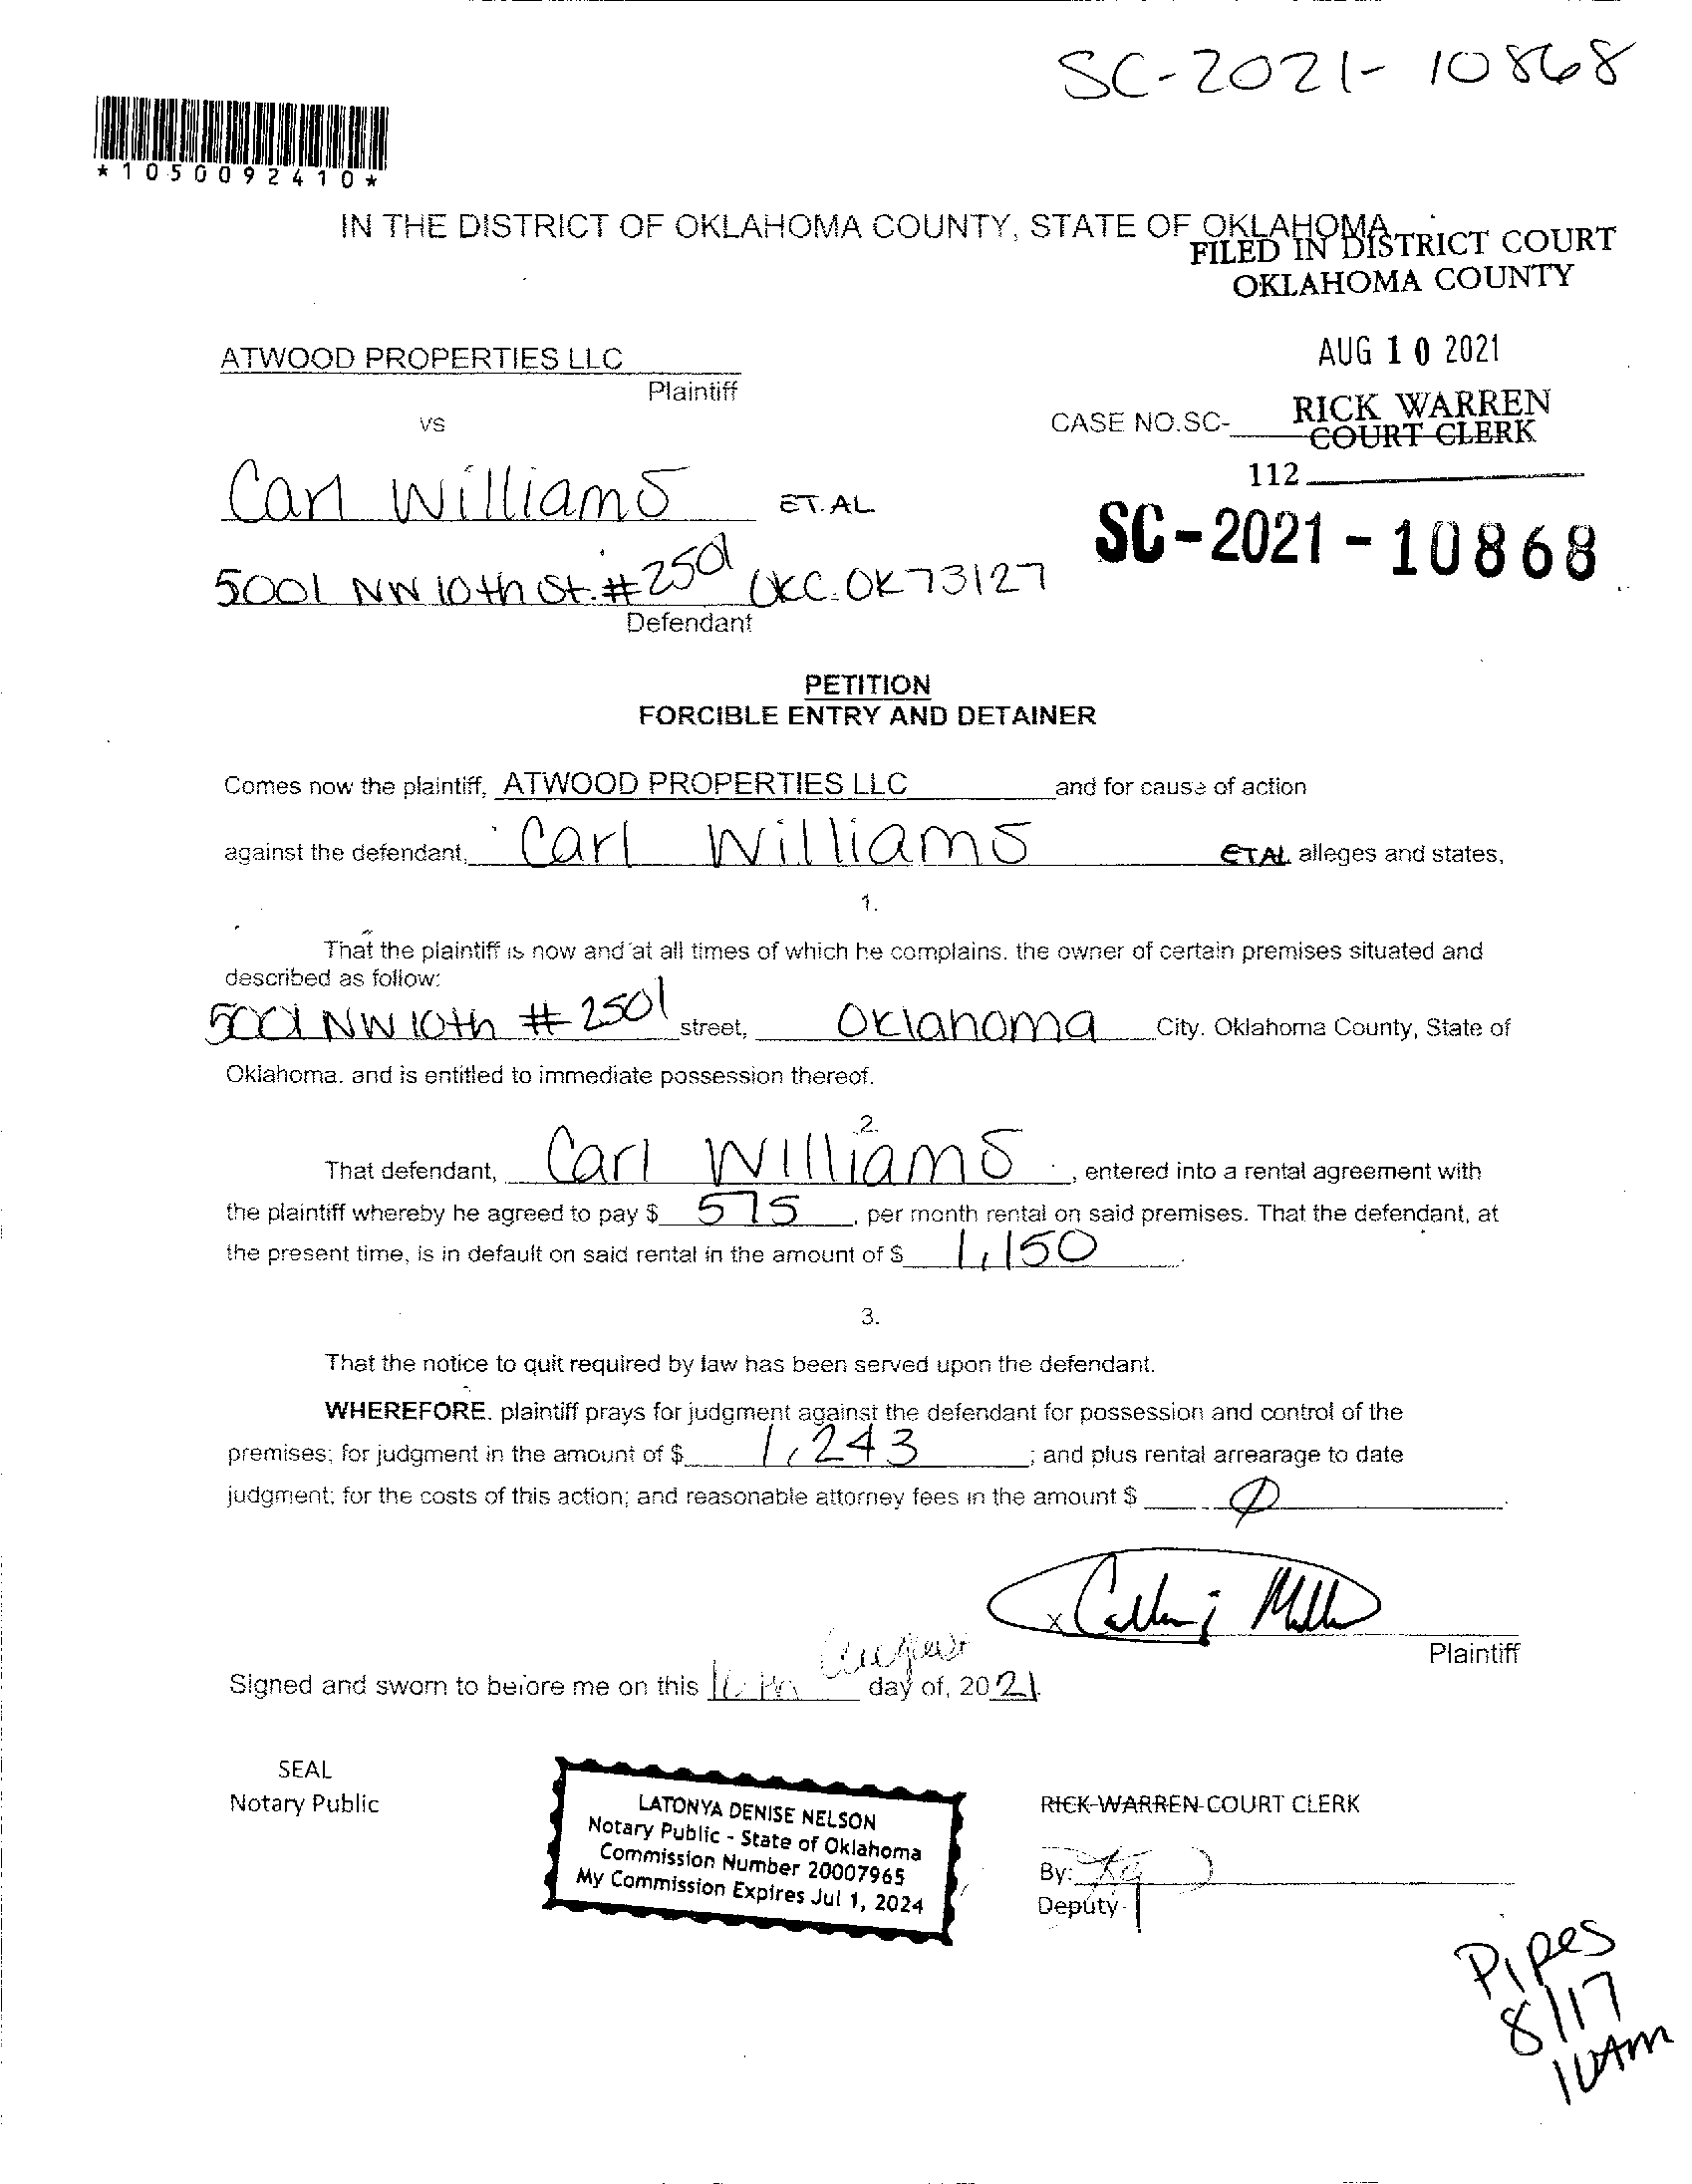 SC-2021-10868
*1050092410*
IN THE DISTRICT OF OKLAHOMA COUNTY, STATE OF OKLAHOMA
FILED IN DISTRICT COURT
OKLAHOMA COUNTY
ATWOOD PROPERTIES LLC
Plaintiff
AUG 10 2021
vs
CASE NO.SC-
RICK WARREN
COURT CLERK
112
Carl Williams ET.AL
SC-2021-10868
5001 NW 10th St. #2501 OKC. OK 73127
Defendant
PETITION
FORCIBLE ENTRY AND DETAINER
Comes now the plaintiff, ATWOOD PROPERTIES LLC and for cause of action
against the defendant, Carl Williams ETAL alleges and states,
1.
That the plaintiff is now and at all times of which he complains. the owner of certain premises situated and
described as follow:
5001 NW 10th #2501 street, Oklahoma City. Oklahoma County, State of
Oklahoma. and is entitled to immediate possession thereof.
2.
That defendant, Carl Williams, entered into a rental agreement with
the plaintiff whereby he agreed to pay $ 575, per month rental on said premises. That the defendant, at
the present time, is in default on said rental in the amount of $ 1,150.
3.
That the notice to quit required by law has been served upon the defendant.
WHEREFORE. plaintiff prays for judgment against the defendant for possession and control of the
premises; for judgment in the amount of $ 1,243; and plus rental arrearage to date
judgment; for the costs of this action; and reasonable attorney fees in the amount $ Ø.
x
Plaintiff
August
Signed and sworn to before me on this day of, 2021.
SEAL
Notary Public
LATONYA DENISE NELSON
Notary Public - State of Oklahoma
Commission Number 20007965
My Commission Expires Jul 1, 2024
RICK WARREN COURT CLERK
By:
Deputy
Pipes
8/17
10AM